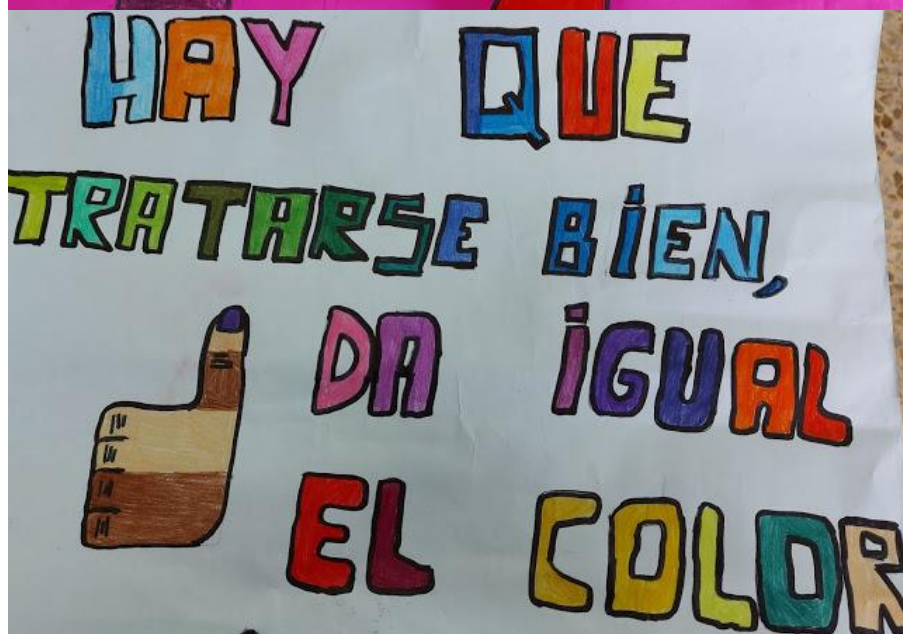 HAY QUE
TRATARSE BIEN,
DA IGUAL
EL COLOR